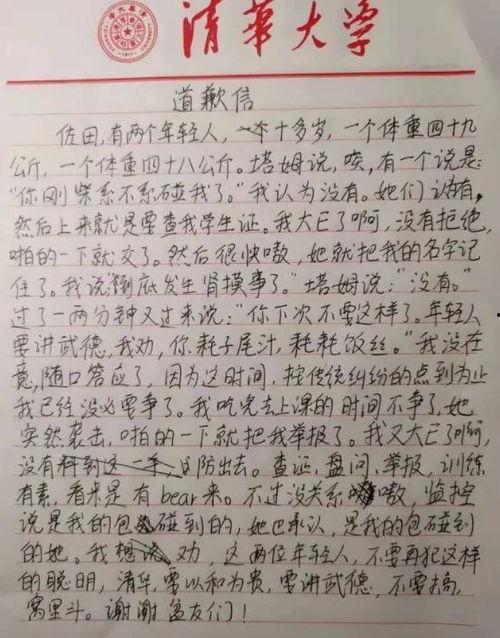 清华大学
道歉信
佐田，有两个年轻人，一个十多岁，一个体重四十九
公斤，一个体重四十八公斤。塔姆说，唉，有一个说是：
“你刚柴系不系碰我了。”我认为没有。她们认为有，
然后上来就是要查我学生证。我大E了啊，没有拒绝，
啪的一下就交了。然后很快嗷，她就把我的名字记
住了。我说到底发生肾摸事了。”塔姆说：“没有。”
过了一两分钟又过来说：“你下次不要这样了。年轻人
要讲武德，我劝，你耗子尾汁，耗耗饭丝。”我没在
意，随口答应了，因为这时间，按传统纠纷的点到为止
我已经没必要争了。我吃完去上课的时间不争了，她
突然袭击，啪的一下就把我举报了。我又大E了啊，
没有防出去。查证、盘问、举报，训练
有素，看来是有bear来。不过没关系嗷，监控
说是我的包碰到的，她也承认，是我的包碰到
的她。我劝 这两位年轻人，不要再犯这样
的聪明，清华，要以和为贵，要讲武德，不要搞，
窝里斗。谢谢盆友们！